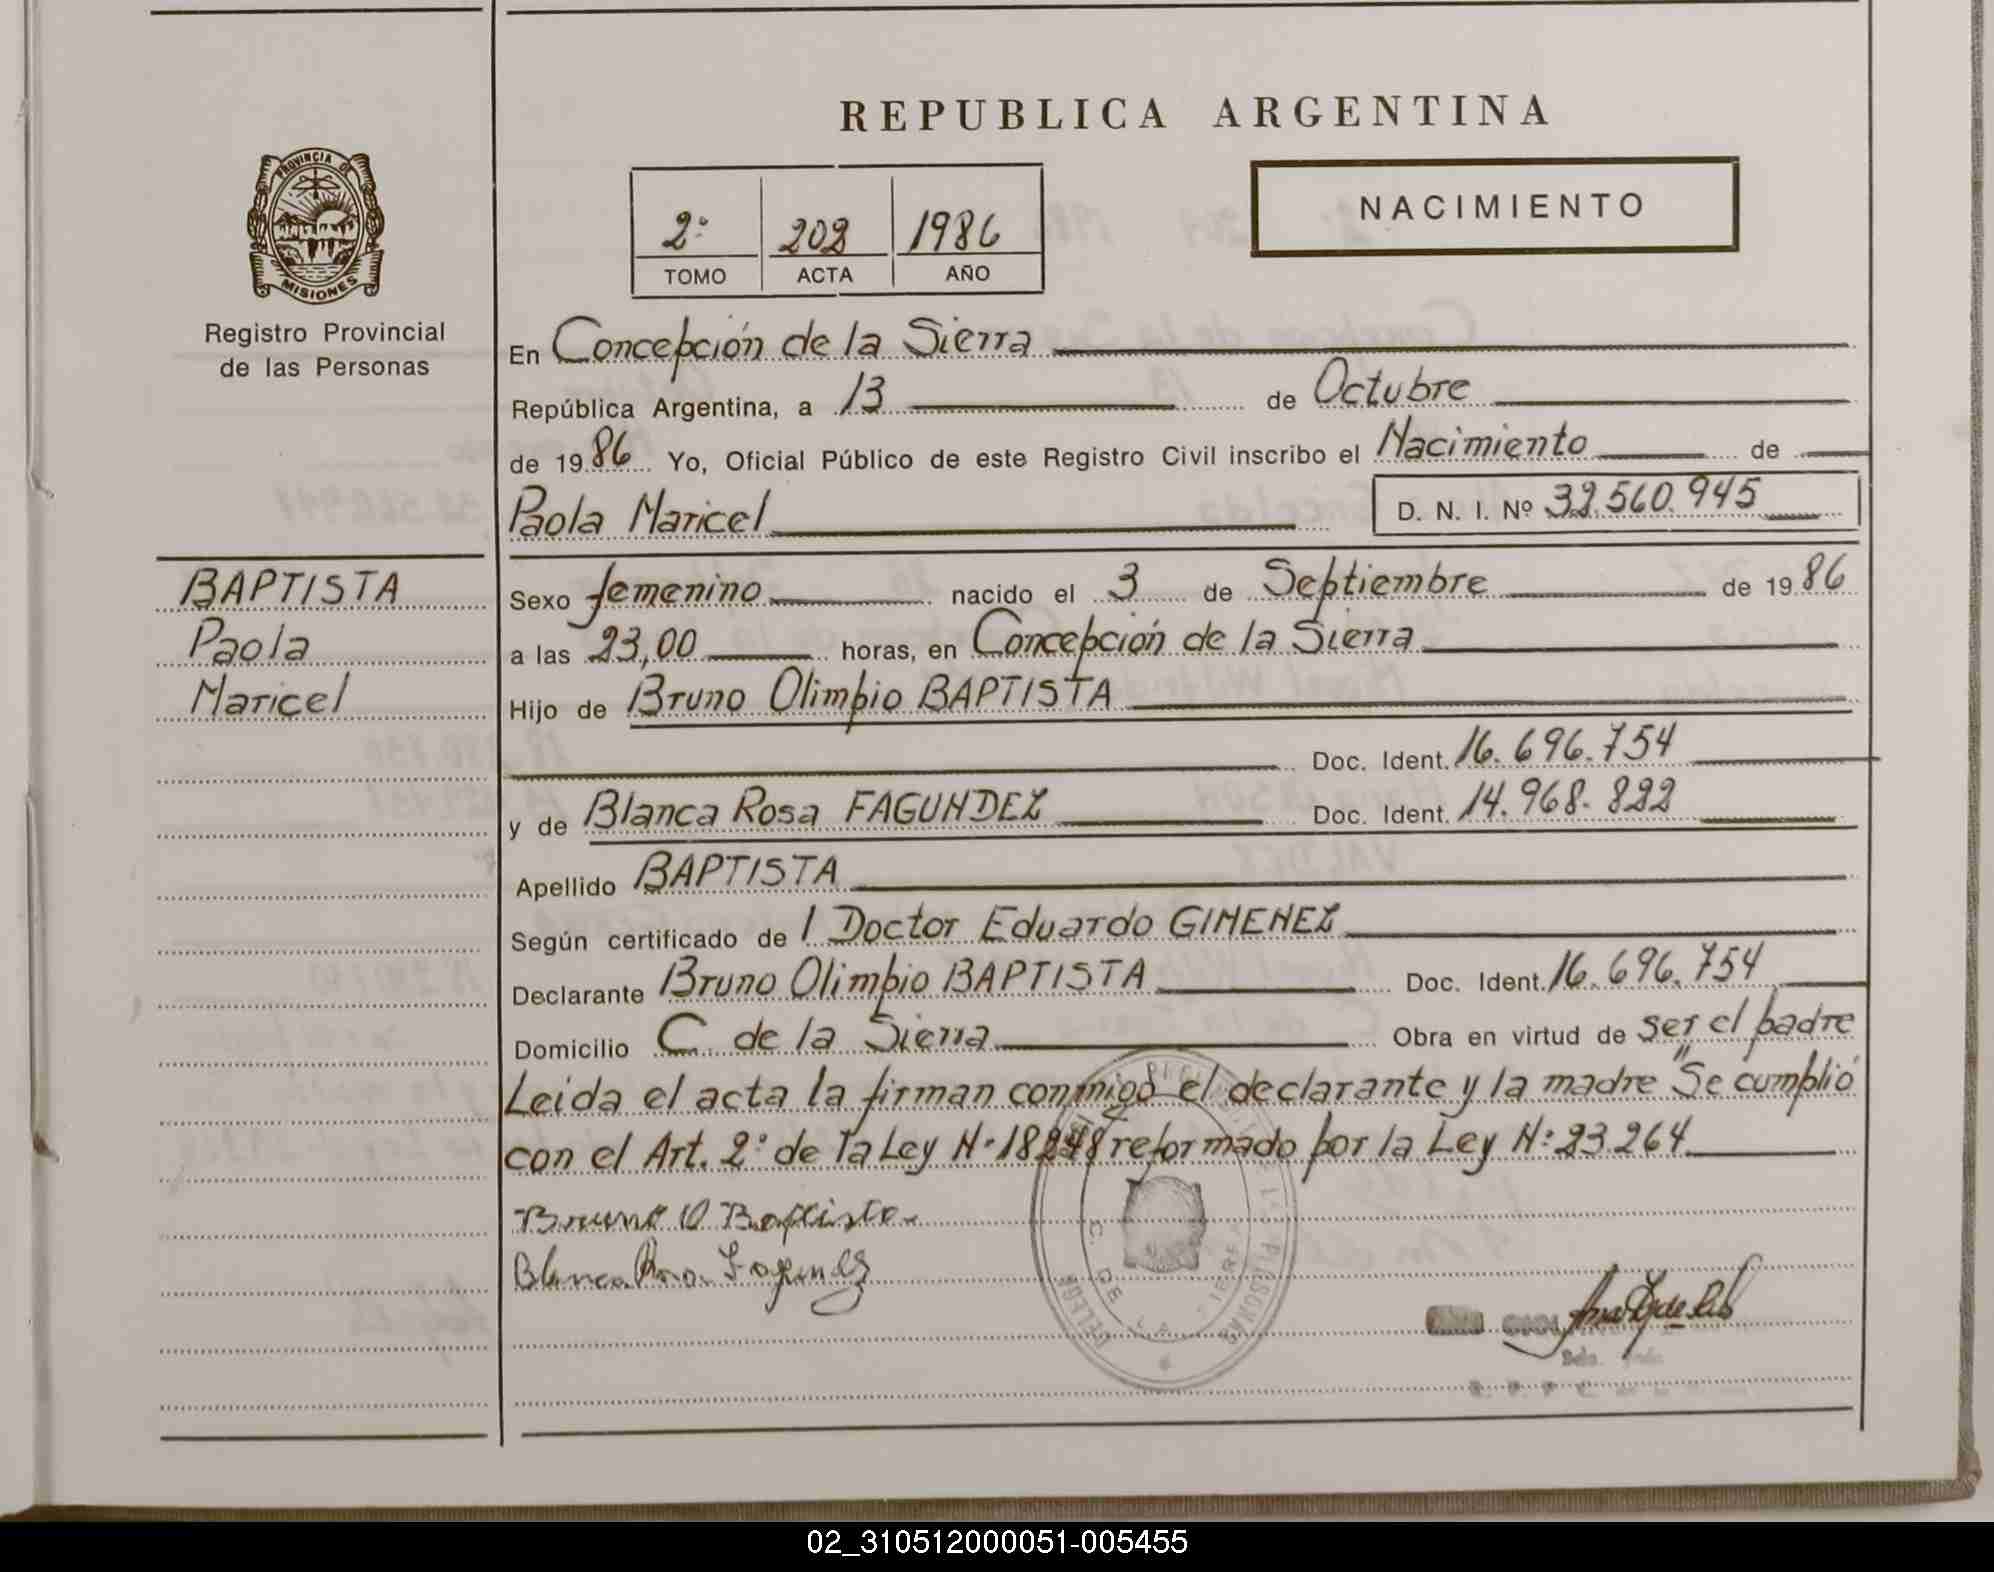 REPUBLICA ARGENTINA
PROVINCIA DE
MISIONES
Registro Provincial
de las Personas
2º 202 1986
TOMO ACTA AÑO
NACIMIENTO
En Concepción de la Sierra
República Argentina, a 13 de Octubre
de 1986 Yo, Oficial Público de este Registro Civil inscribo el Nacimiento de
Paola Maricel D. N. I. Nº 32.560.945
BAPTISTA
Paola
Maricel
Sexo femenino nacido el 3 de Septiembre de 1986
a las 23,00 horas, en Concepción de la Sierra
Hijo de Bruno Olimpio BAPTISTA
Doc. Ident. 16.696.754
y de Blanca Rosa FAGUNDEZ Doc. Ident. 14.968.822
Apellido BAPTISTA
Según certificado de l Doctor Eduardo GIMENEZ
Declarante Bruno Olimpio BAPTISTA Doc. Ident. 16.696.754
Domicilio C. de la Sierra Obra en virtud de ser el padre
Leida el acta la firman conmigo el declarante y la madre "Se cumplió
con el Art. 2º de la Ley Nº 18248 reformado por la Ley Nº 23.264
Bruno O Baptista
Blanca Rosa Fagundez
C. DE LA SIERRA
02_310512000051-005455